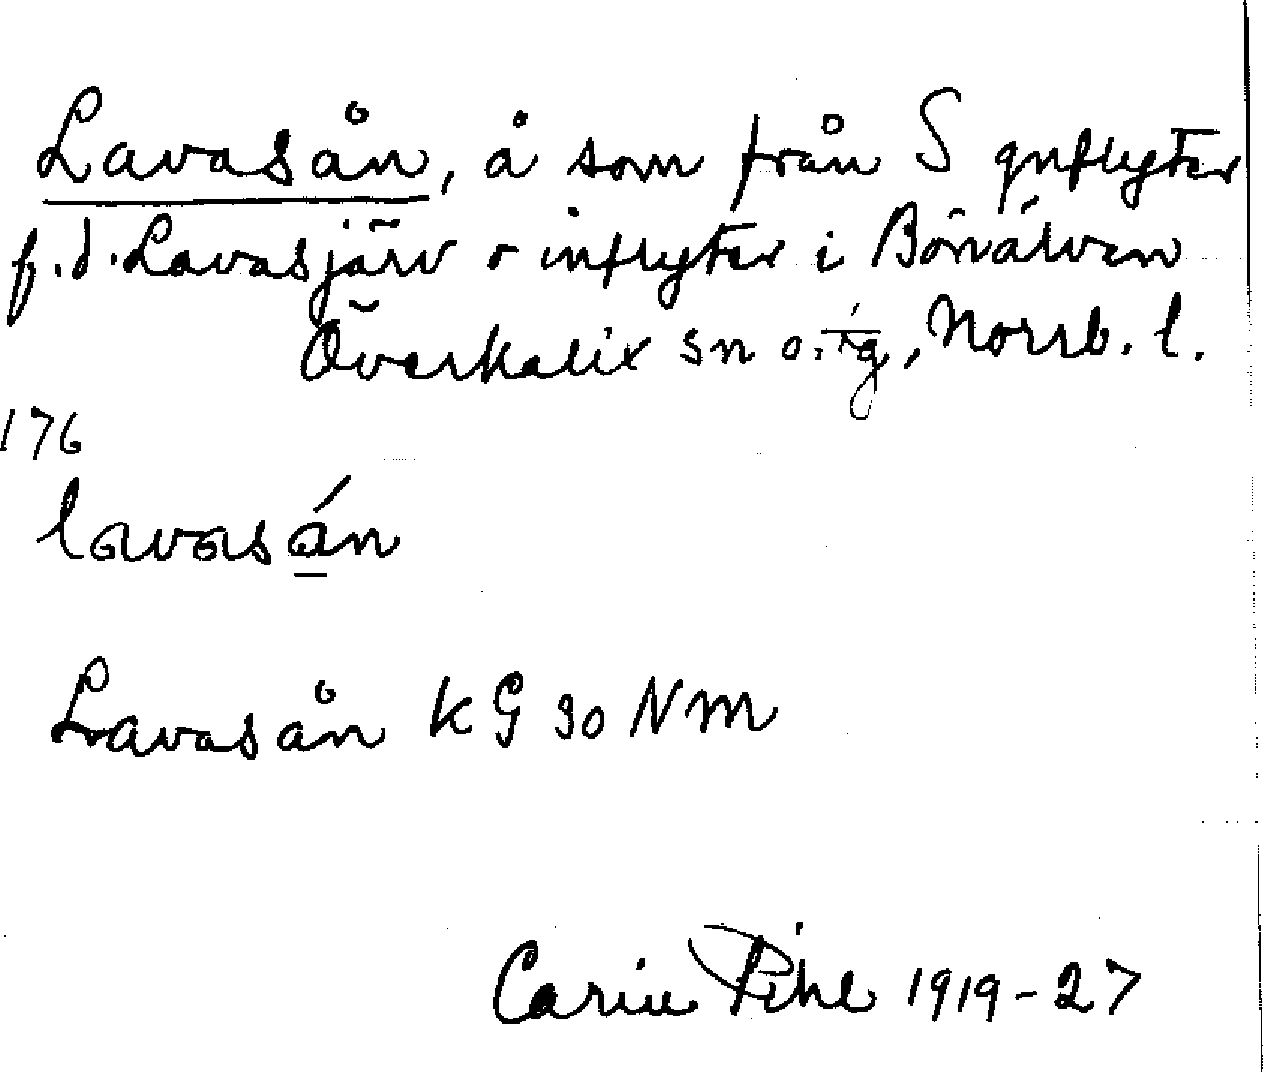 Lavasån, å som från S gnflyter
f.d. Lavasjärv o inflyter i Bönälven
Överkalix sn o. tg, Norrb. l.
176
lavasán
Lavasån KG 30 NM
Carin Pihl 1919-27